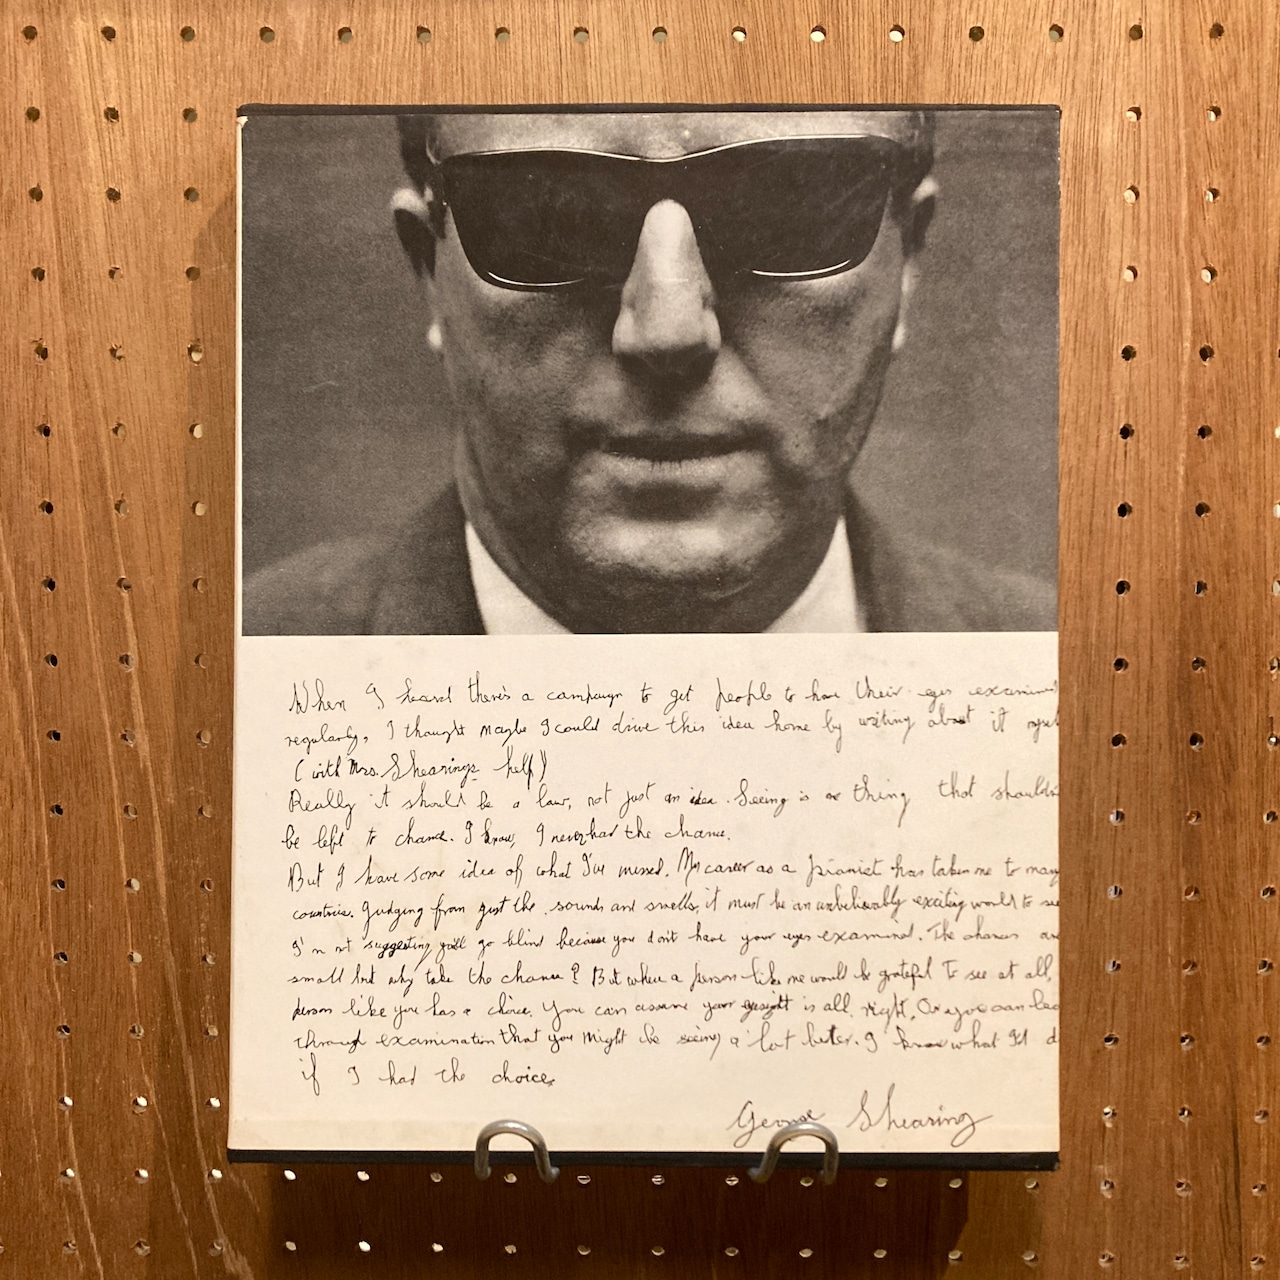 When I heard there's a campaign to get people to have their eyes examined
regularly, I thought maybe I could drive this idea home by writing about it
(with Mrs. Shearings help)
Really it should be a law, not just an idea. Seeing is one thing that shouldn
be left to chance. I know, I never had the chance.
But I have some idea of what I've missed. My career as a pianist has taken me to many
countries. Judging from just the sounds and smells, it must be an unbelievably exciting world to see
I'm not suggesting you'll go blind because you don't have your eyes examined. The chances are
small but why take the chance? But when a person like me would be grateful to see at all,
person like you has a choice. You can assume your eyesight is all right. Or you can
through examination that you might be seeing a lot better. I know what I'd d
if I had the choice.
George Shearing